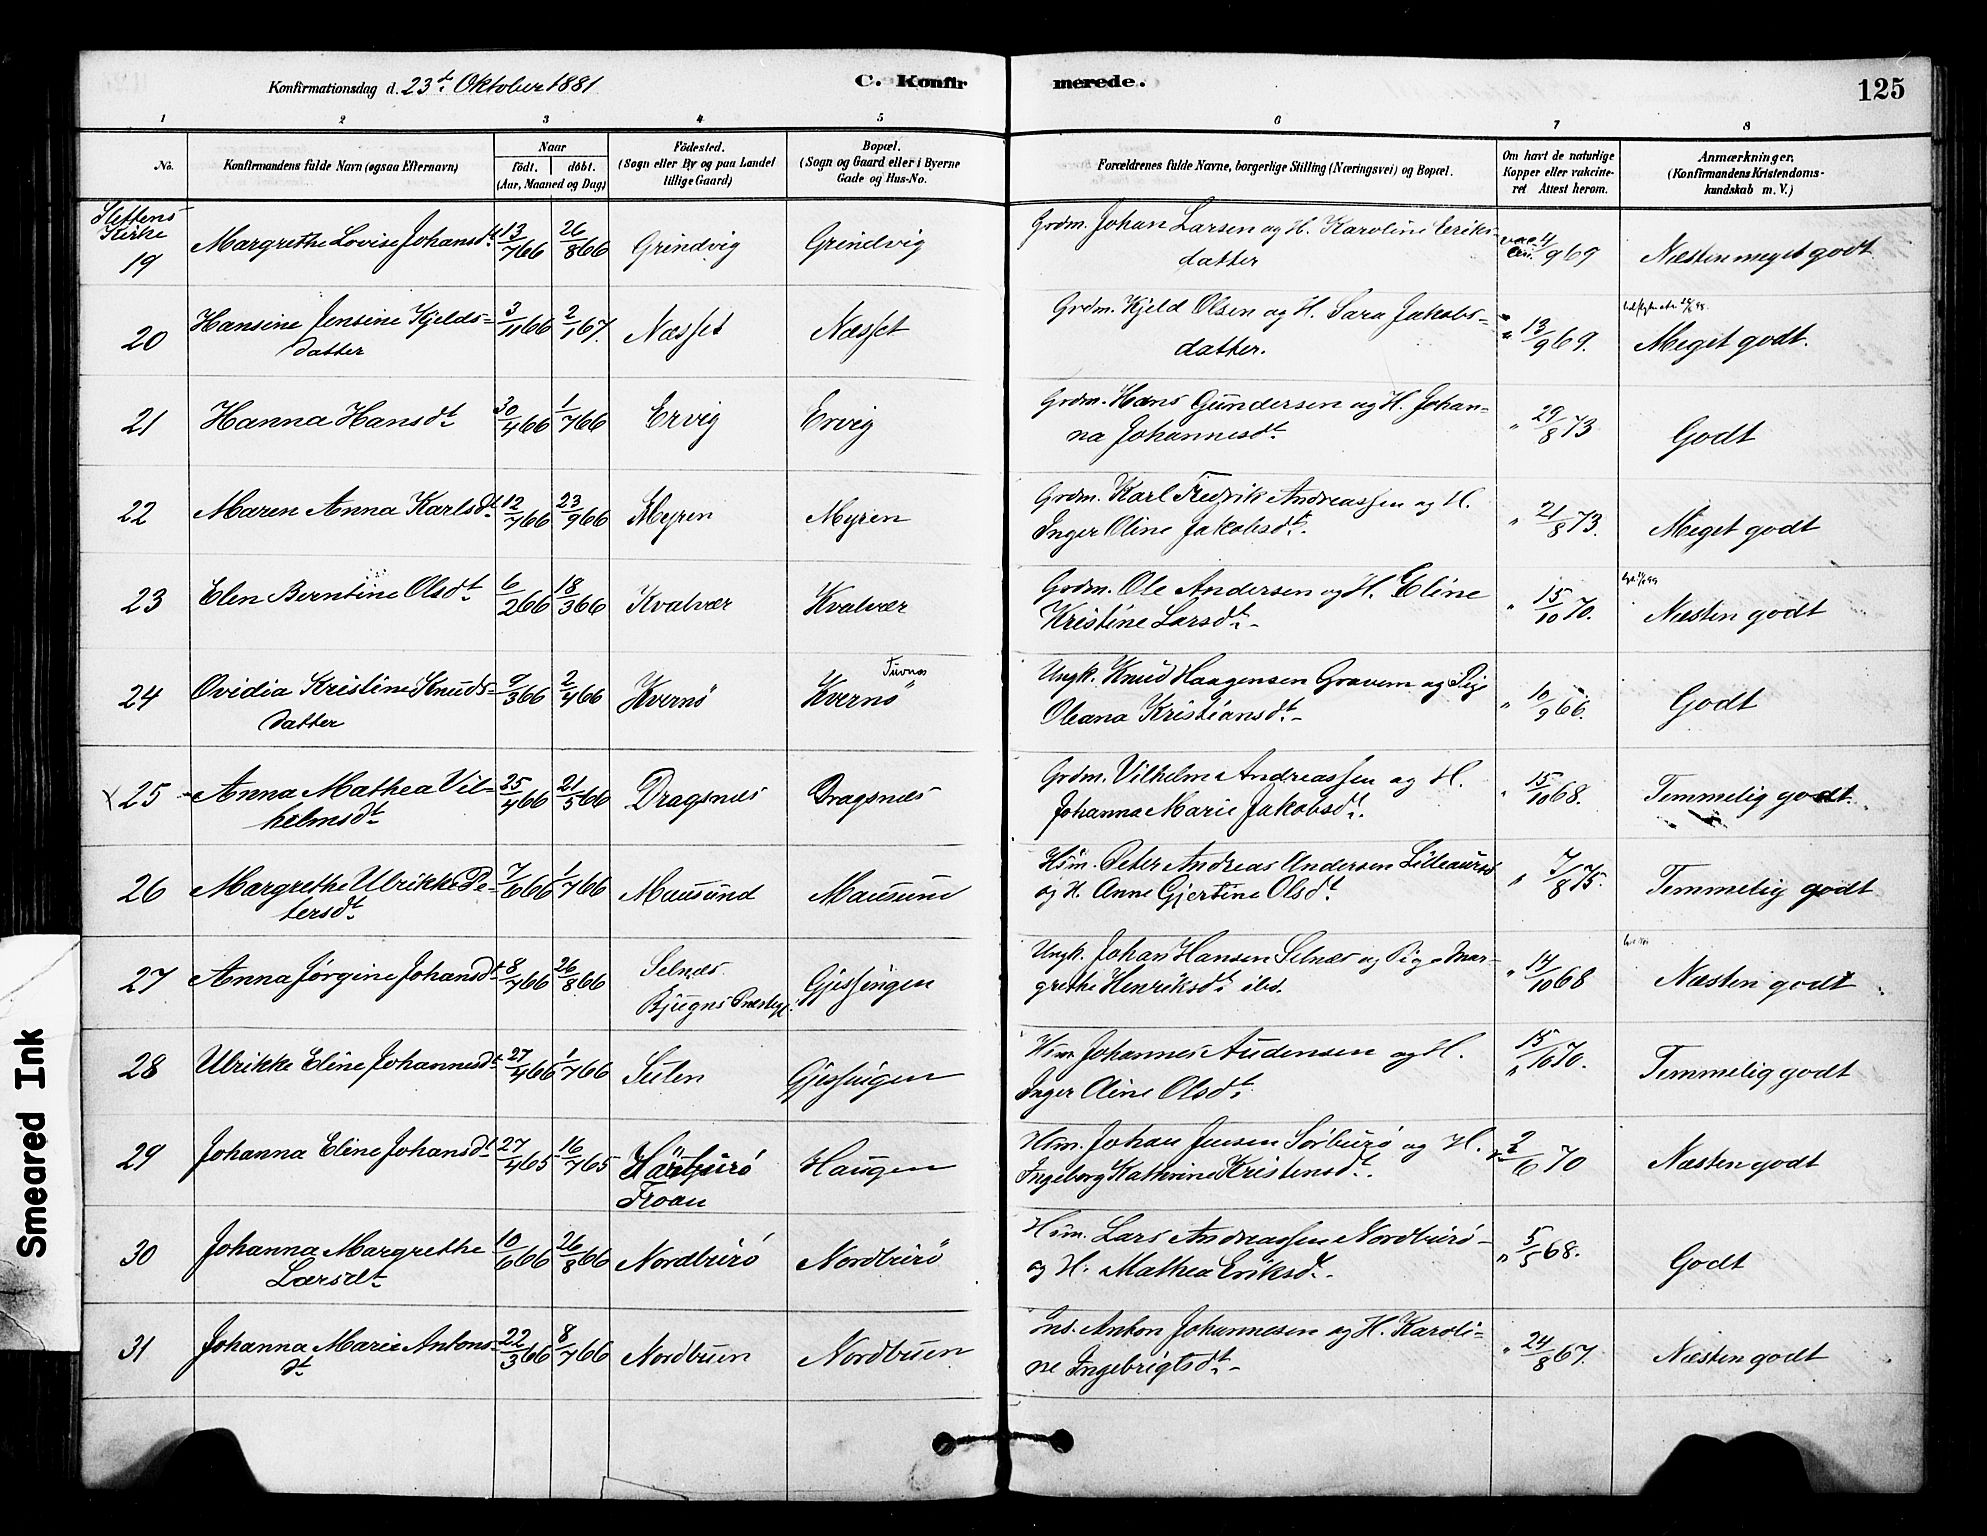 Konfirmationsdag d. 23de Oktober 1881
C. Konfir
merede.
125
1 2 3 4 5 6 7 8
No.
Konfirmandens fulde Navn (ogsaa Efternavn)
Naar
født. døbt.
(Aar, Maaned og Dag)
Fødested.
(Sogn eller By og paa Landet
tillige Gaard)
Bopæl.
(Sogn og Gaard eller i Byerne
Gade og Hus-No.
Forældrenes fulde Navne, borgerlige Stilling (Næringsvei) og Bopæl.
Om havt de naturlige
Kopper eller vakcine-
ret Attest herom.
Anmærkninger.
(Konfirmandens Kristendoms-
kundskab m. V.)
Slettens
Kirke
19 Margrethe Lovise Johansdt. 13/7 66 26/8 66 Grindvig Grindvig Grdm. Johan Larsen og H. Karoline Eriks-
datter 4/9 69 Næsten meget godt
20 Hansine Jensine Kjelds-
datter 3/11 66 2/1 67. Næsset Næsset Grdm. Kjeld Olsen og H. Sara Jakobs-
datter. " 13/9 69. Meget godt.
21 Hanna Hansdt. 30/4 66 1/7 66 Ervig Ervig Grdm. Hans Gundersen og H. Johan-
na Johannesdt. " 29/8 73 Godt
22 Maren Anna Karlsdt. 12/7 66 23/9 66 Myren Myren Grdm. Karl Fredrik Andreassen og H.
Inger Oline Jakobsdt. " 21/8 73. Meget godt
23 Elen Berntine Olsdt. 6/2 66 18/3 66 Kvalvær Kvalvær Grdm. Ole Andersen og H. Eline
Kristine Larsdt. " 15/10 70. Næsten godt
24 Ovidia Kristine Knuds-
datter 9/3 66 2/4 66 Kvernö Kvernö Ungk. Knud Haagensen Gravem og Pige
Oleana Kristiansdt. " 10/9 66. Godt
25 Anna Mathea Vil-
helmsdt. 25/4 66 21/5 66 Dragsnæs Dragsnæs Grdm. Vilhelm Andreassen og H.
Johanna Marie Jakobsdt. " 15/10 68. Temmelig godt.
26 Margrethe Ulrikke Pe-
tersdt. 7/6 66 1/7 66 Mausund Mausund Hsm. Peter Andreas Andersen
og H. Anne Gjertine Olsdt. " 7/8 75. Temmelig godt
27 Anna Jørgine Johansdt. 8/7 66 26/8 66 Selnæs
Bjugns Præstegj. Gjessingen Ungk. Johan Hansen Selnæs og Pige Mar-
grethe Henriksdt. ibd. " 14/10 68 Næsten godt
28 Ulrikke Eline Johannesdt. 27/4 66 1/7 66 Sulen Gjessingen Hsm. Johannes Audensen og H.
Inger Oline Olsdt. " 15/6 70. Temmelig godt
29 Johanna Eline Johansdt. 27/4 65 16/7 65
Froan Haugen Hsm. Johan Jensen Sørburø og H.
Ingeborg Kathrine Kristensdt. 2/6 70 Næsten godt
30 Johanna Margrethe
Larsdt. 10/6 66 26/8 66 Nordburø Nordburö Hsm. Lars Andreassen Nordburø
og H. Mathea Eriksdt. " 5/5 68. Godt
31 Johanna Marie Antons-
dt. 22/3 66 8/7 66 Nordbuen Nordbuen Ins. Anton Johannesen og H. Karoli-
ne Ingebrigtsdt. " 24/8 67. Næsten godt
Smeared Ink